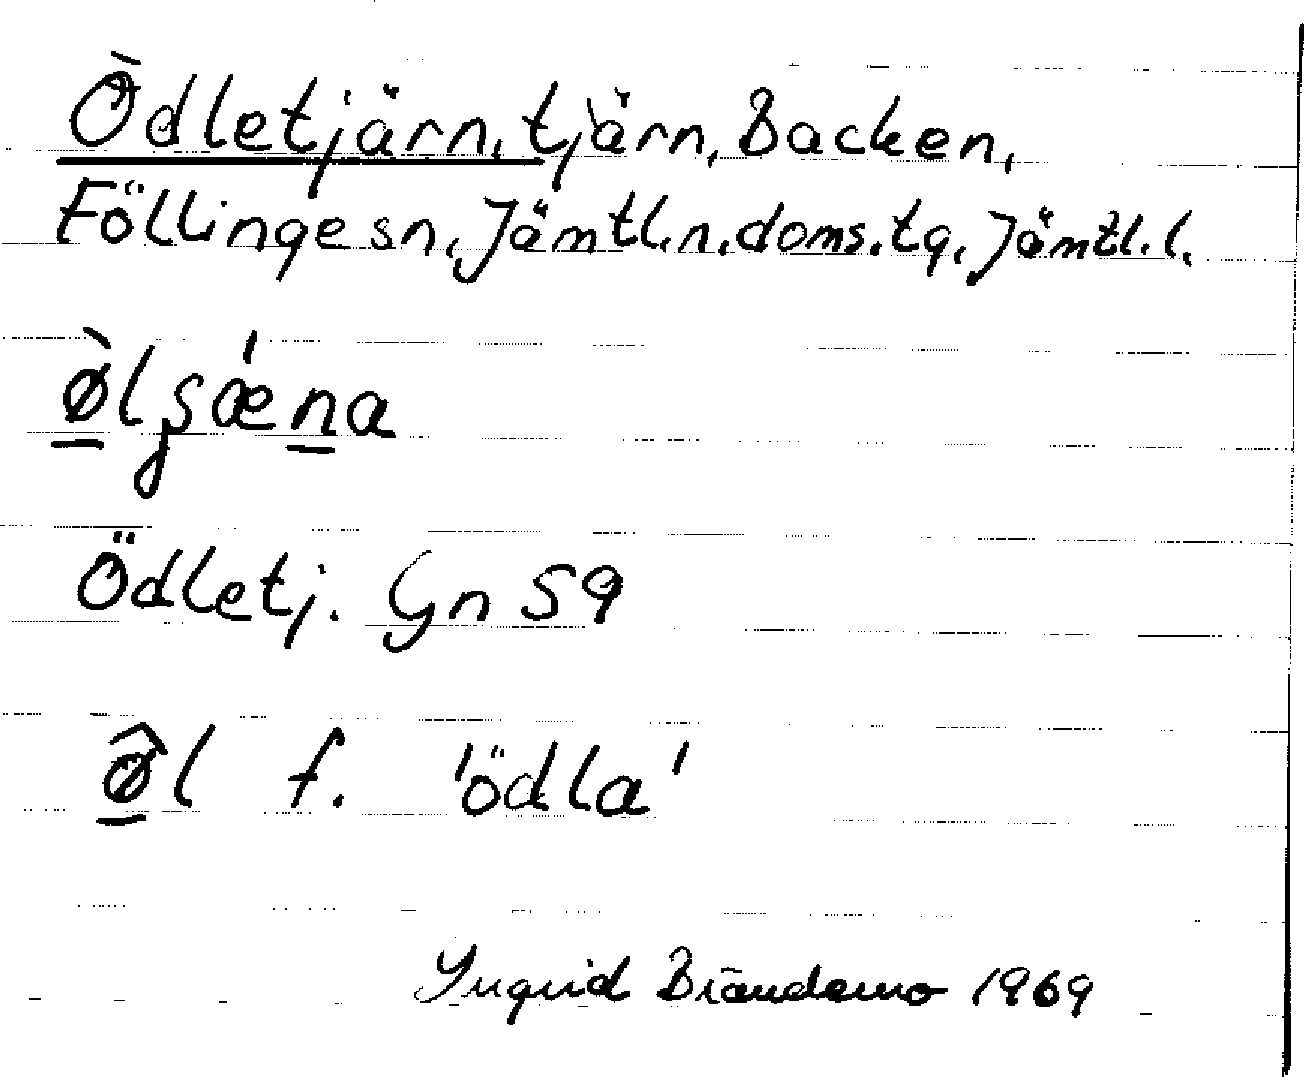 Ödletjärn, tjärn, Backen,
Föllinge sn, Jämtl. n. doms. tg, Jämtl. l.
ø̀lʂǽna
Ödletj. Gn 59
ø̂l f. 'ödla'
Yngrid Brändemo 1969